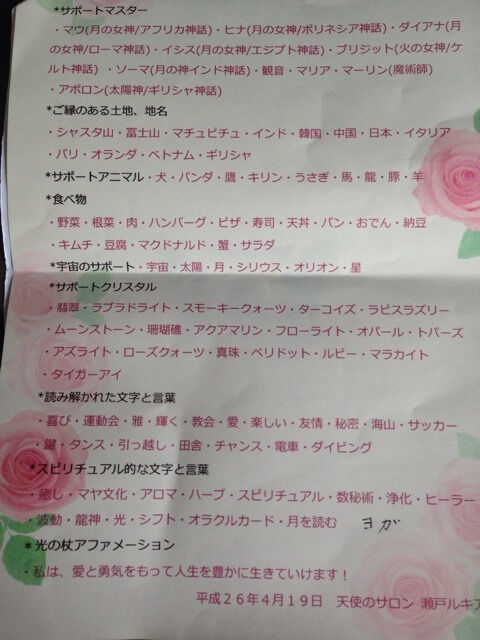 *サポートマスター
・マウ(月の女神/アフリカ神話)・ヒナ(月の女神/ポリネシア神話)・ダイアナ(月
の女神/ローマ神話)・イシス(月の女神/エジプト神話)・ブリジット(火の女神/ケ
ルト神話）・ソーマ(月の神インド神話)・観音・マリア・マーリン(魔術師)
・アポロン(太陽神/ギリシャ神話)
*ご縁のある土地、地名
・シャスタ山・富士山・マチュピチュ・インド・韓国・中国・日本・イタリア
・バリ・オランダ・ベトナム・ギリシャ
*サポートアニマル・犬・パンダ・鷹・キリン・うさぎ・馬・龍・豚・羊
*食べ物
・野菜・根菜・肉・ハンバーグ・ピザ・寿司・天丼・パン・おでん・納豆
・キムチ・豆腐・マクドナルド・蟹・サラダ
*宇宙のサポート・宇宙・太陽・月・シリウス・オリオン・星
*サポートクリスタル
・翡翠・ラブラドライト・スモーキークォーツ・ターコイズ・ラピスラズリー
・ムーンストーン・珊瑚礁・アクアマリン・フローライト・オパール・トパーズ
・アズライト・ローズクォーツ・真珠・ペリドット・ルビー・マラカイト
・タイガーアイ
*読み解かれた文字と言葉
・喜び・運動会・雅・輝く・教会・愛・楽しい・友情・秘密・海山・サッカー
・鍵・タンス・引っ越し・田舎・チャンス・電車・ダイビング
*スピリチュアル的な文字と言葉
・癒し・マヤ文化・アロマ・ハーブ・スピリチュアル・数秘術・浄化・ヒーラー
・波動・龍神・光・シフト・オラクルカード・月を読む ヨガ
*光の杖アファメーション
・私は、愛と勇気をもって人生を豊かに生きていけます！
平成２６年４月１９日 天使のサロン 瀬戸ルキア